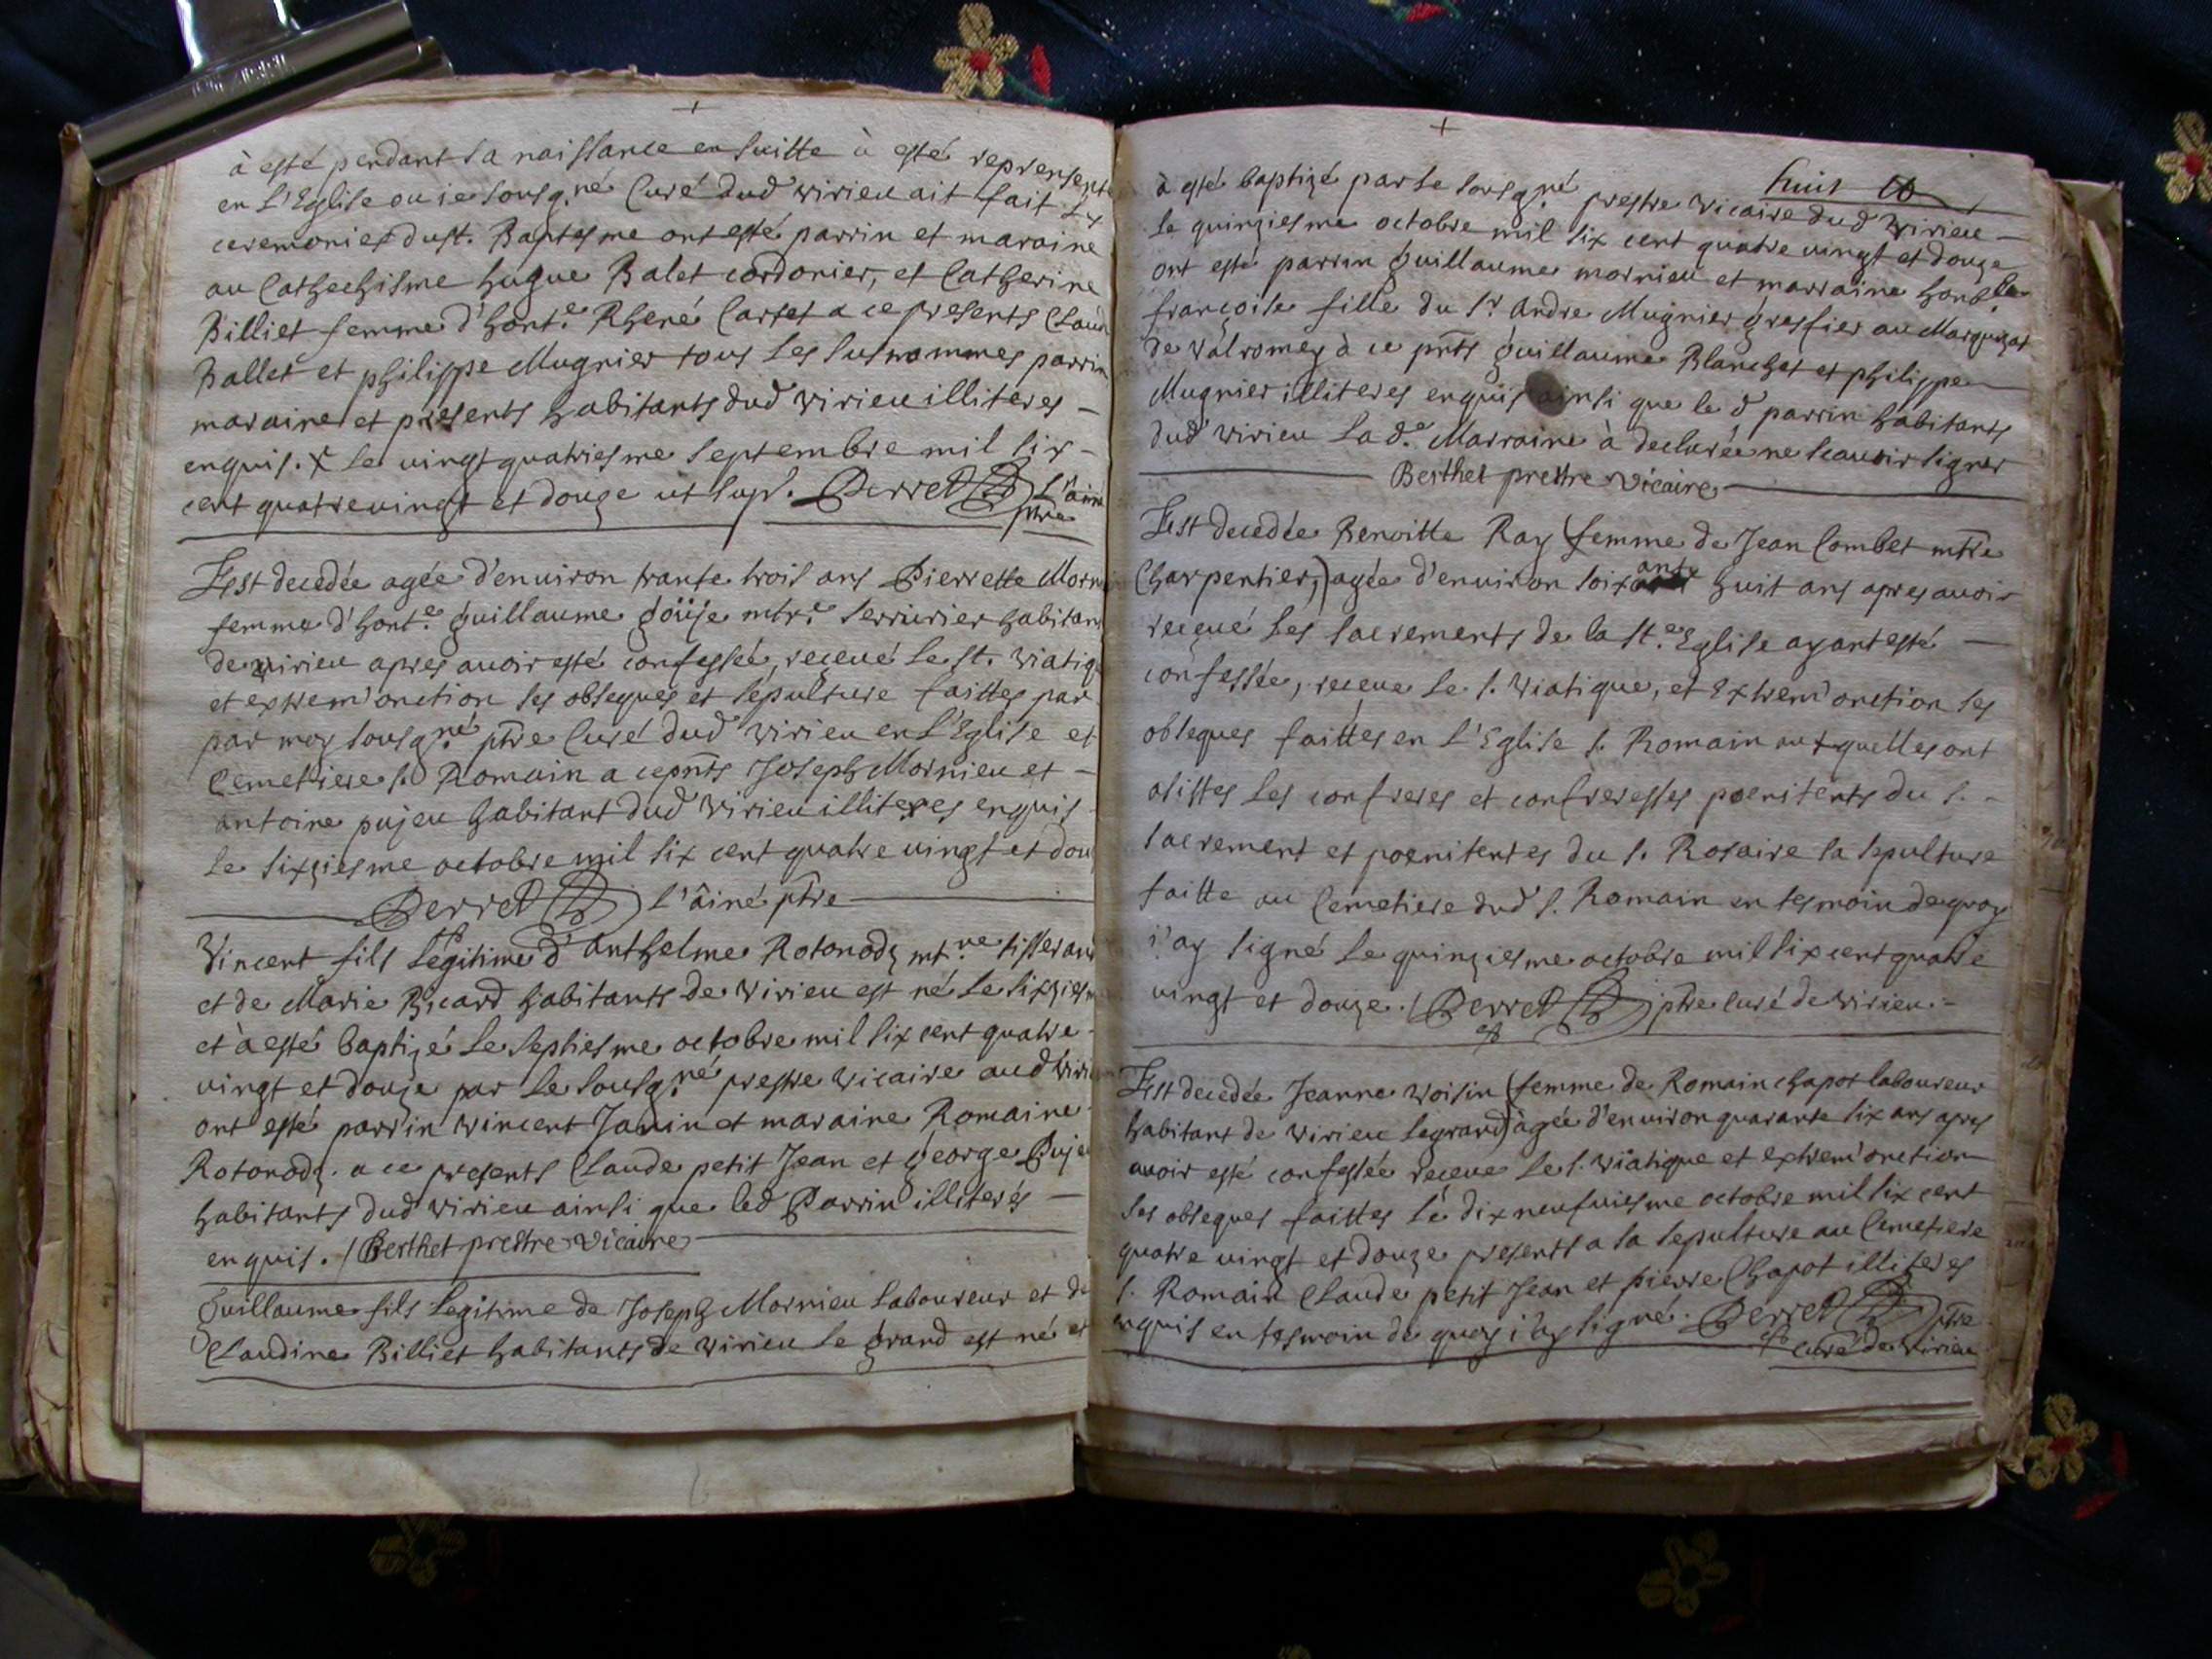 +
à esté pendant sa naissance en suitte à esté represente
en L'Eglise ou ie sousg.né Curé dud virieu ait fait Les
ceremonies du st. Baptesme ont esté parrin et maraine
au Cathechisme hugue Balet cordonier, et Catherine
Billiet femme d'hont.e Rhené Carret a ce presents Claud
Ballet et philippe Mugnier tous Les susnommes parrin
maraine et presents habitants dud virieu illiteres -
enquis. x Le vingt quatriesme septembre mil six -
cent quatre vingt et douze ut sup. Perret L'aine
ptre
Est decedée agée d'environ trante trois ans Pierrette Morn
femme d'hont.e guillaume goüje mtr.e serrurier habitan
de virieu apres avoir esté confessée, receue Le st. viatiq
et extrem'onction ses obseques et sepulture faittes par
par moy sousg.né ptre Curé dud virieu en L'Eglise et
Cemetiere s. Romain a ce pnts Joseph Mornieu et -
antoine pujeu habitant dud virieu illiteres enquis -
Le sixziesme octobre mil six cent quatre vingt et dou
Perret L'âiné ptre
Vincent fils Legitime d'Anthelme Rotonod, mt.re tisseran
et de Marie Bicard habitants de virieu est né Le sixzies
et à esté baptizé Le septiesme octobre mil six cent quatre -
vingt et douze par Le sousg.né prestre vicaire aud viri
ont esté parrin vincent Janin et maraine Romaine -
Rotonod. a ce presents Claude petit Jean et george Puje
habitants dud virieu ainsi que led Parrin illiterés —
enquis. / Berthet prestre vicaire
Guillaume fils Legitime de Joseph Mornieu Laboureur et de
Claudine Billiet habitants de virieu Le grand est né et
+
huit
à esté baptizé par Le sousg.né prestre vicaire dud virieu —
Le quinziesme octobre mil six cent quatre vingt et douze
ont esté parrin guillaume mornieu et marraine honble
françoise fille du sr Andre Mugnier greffier au Marquizat
de valromey à ce pnts guillaume Blanchet et philippe
Mugnier illiteres enquis ainsi que le d parrin habitants
dud virieu La d.e Marraine à declarée ne scavoir signer
Berthet prestre vicaire
Est decedée Benoitte Ray (femme de Jean Combet mtre
Charpentier,) agée d'environ soixante huit ans apres avoir
receué Les sacrements de la st.e Eglise ayant esté —
confessée, receue Le s. viatique, et Extrem'onction ses
obseques faittes en L'Eglise s. Romain aux quelles ont
asistes Les confreres et confreresses poenitents du s. -
sacrement et poenitentes du s. Rosaire la sepulture
faitte au Cemetiere dud s. Romain en tesmoin dequoy
i'ay signé Le quinziesme octobre mil six cent quatre
vingt et douze. / Perret ptre curé de virieu. -
Est decedée Jeanne voisin (femme de Romain chapot laboureur
habitant de virieu Legrand) àgée d'environ quarante six ans apres
avoir esté confessée receue Le s. viatique et extrem'onction
ses obseques faittes Le dix neufviesme octobre mil six cent
quatre vingt et douze presents a la sepulture au Cemetiere
s. Romain Claude petit Jean et pierre Chapot illiteres
enquis en tesmoin de quoy i'ay signé. Perret ptre
curé de virieu